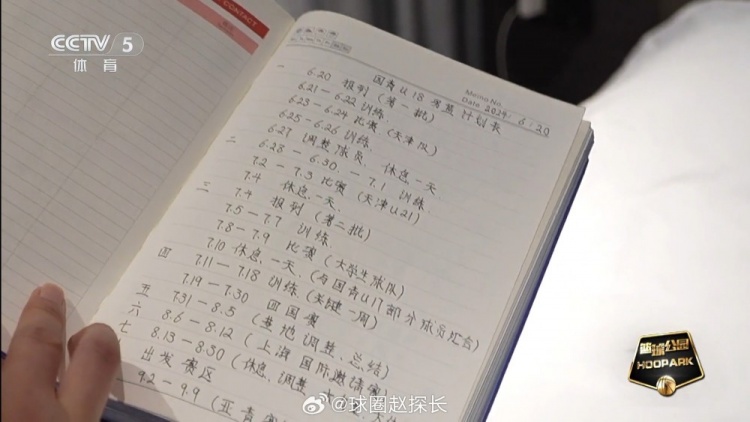 CCTV 5
体育
CONTACT
Memo No.
Date 2024 . 6 . 20
国青U18 考篮 计划表
一 6.20 报到 (第一批)
6.21 — 6.22 训练
6.23 — 6.24 比赛 (天津队)
6.25 — 6.26 训练
6.27 调整/球员 休息一天
二 6.28 — 6.30 — 7.1 训练
7.2 — 7.3 比赛 (天津U21)
7.4 休息一天
三 7.4 报到 (第二批)
7.5 — 7.7 训练
7.8 — 7.9 比赛 (大学生球队)
7.10 休息一天 (与国青U17部分球员汇合)
四 7.11 — 7.18 训练 (关键一周)
7.19 — 7.30 四国赛
五 7.31 — 8.5 (基地调整、总结)
六 8.6 — 8.12 (上海国际邀请赛)
七 8.13 — 8.30 (休息、调整
出发赛区
9.2 — 9.9 (亚青
篮球公园
HOOPARK
@球圈赵探长